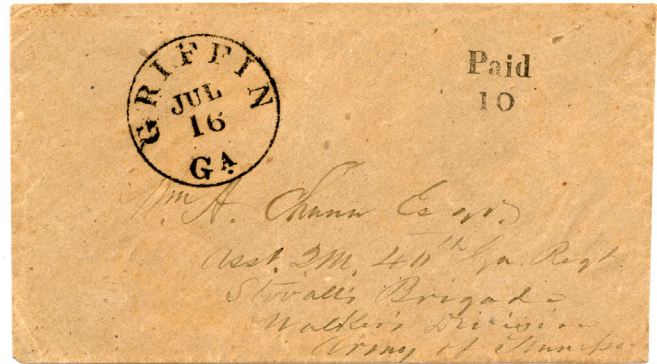 GRIFFIN
JUL
16
GA
Paid
10
Wm A. Chunn Esqr.
Asst. QM, 40th Ga. Regt.
Stovall's Brigade
Walker's Division
Army of Tennessee